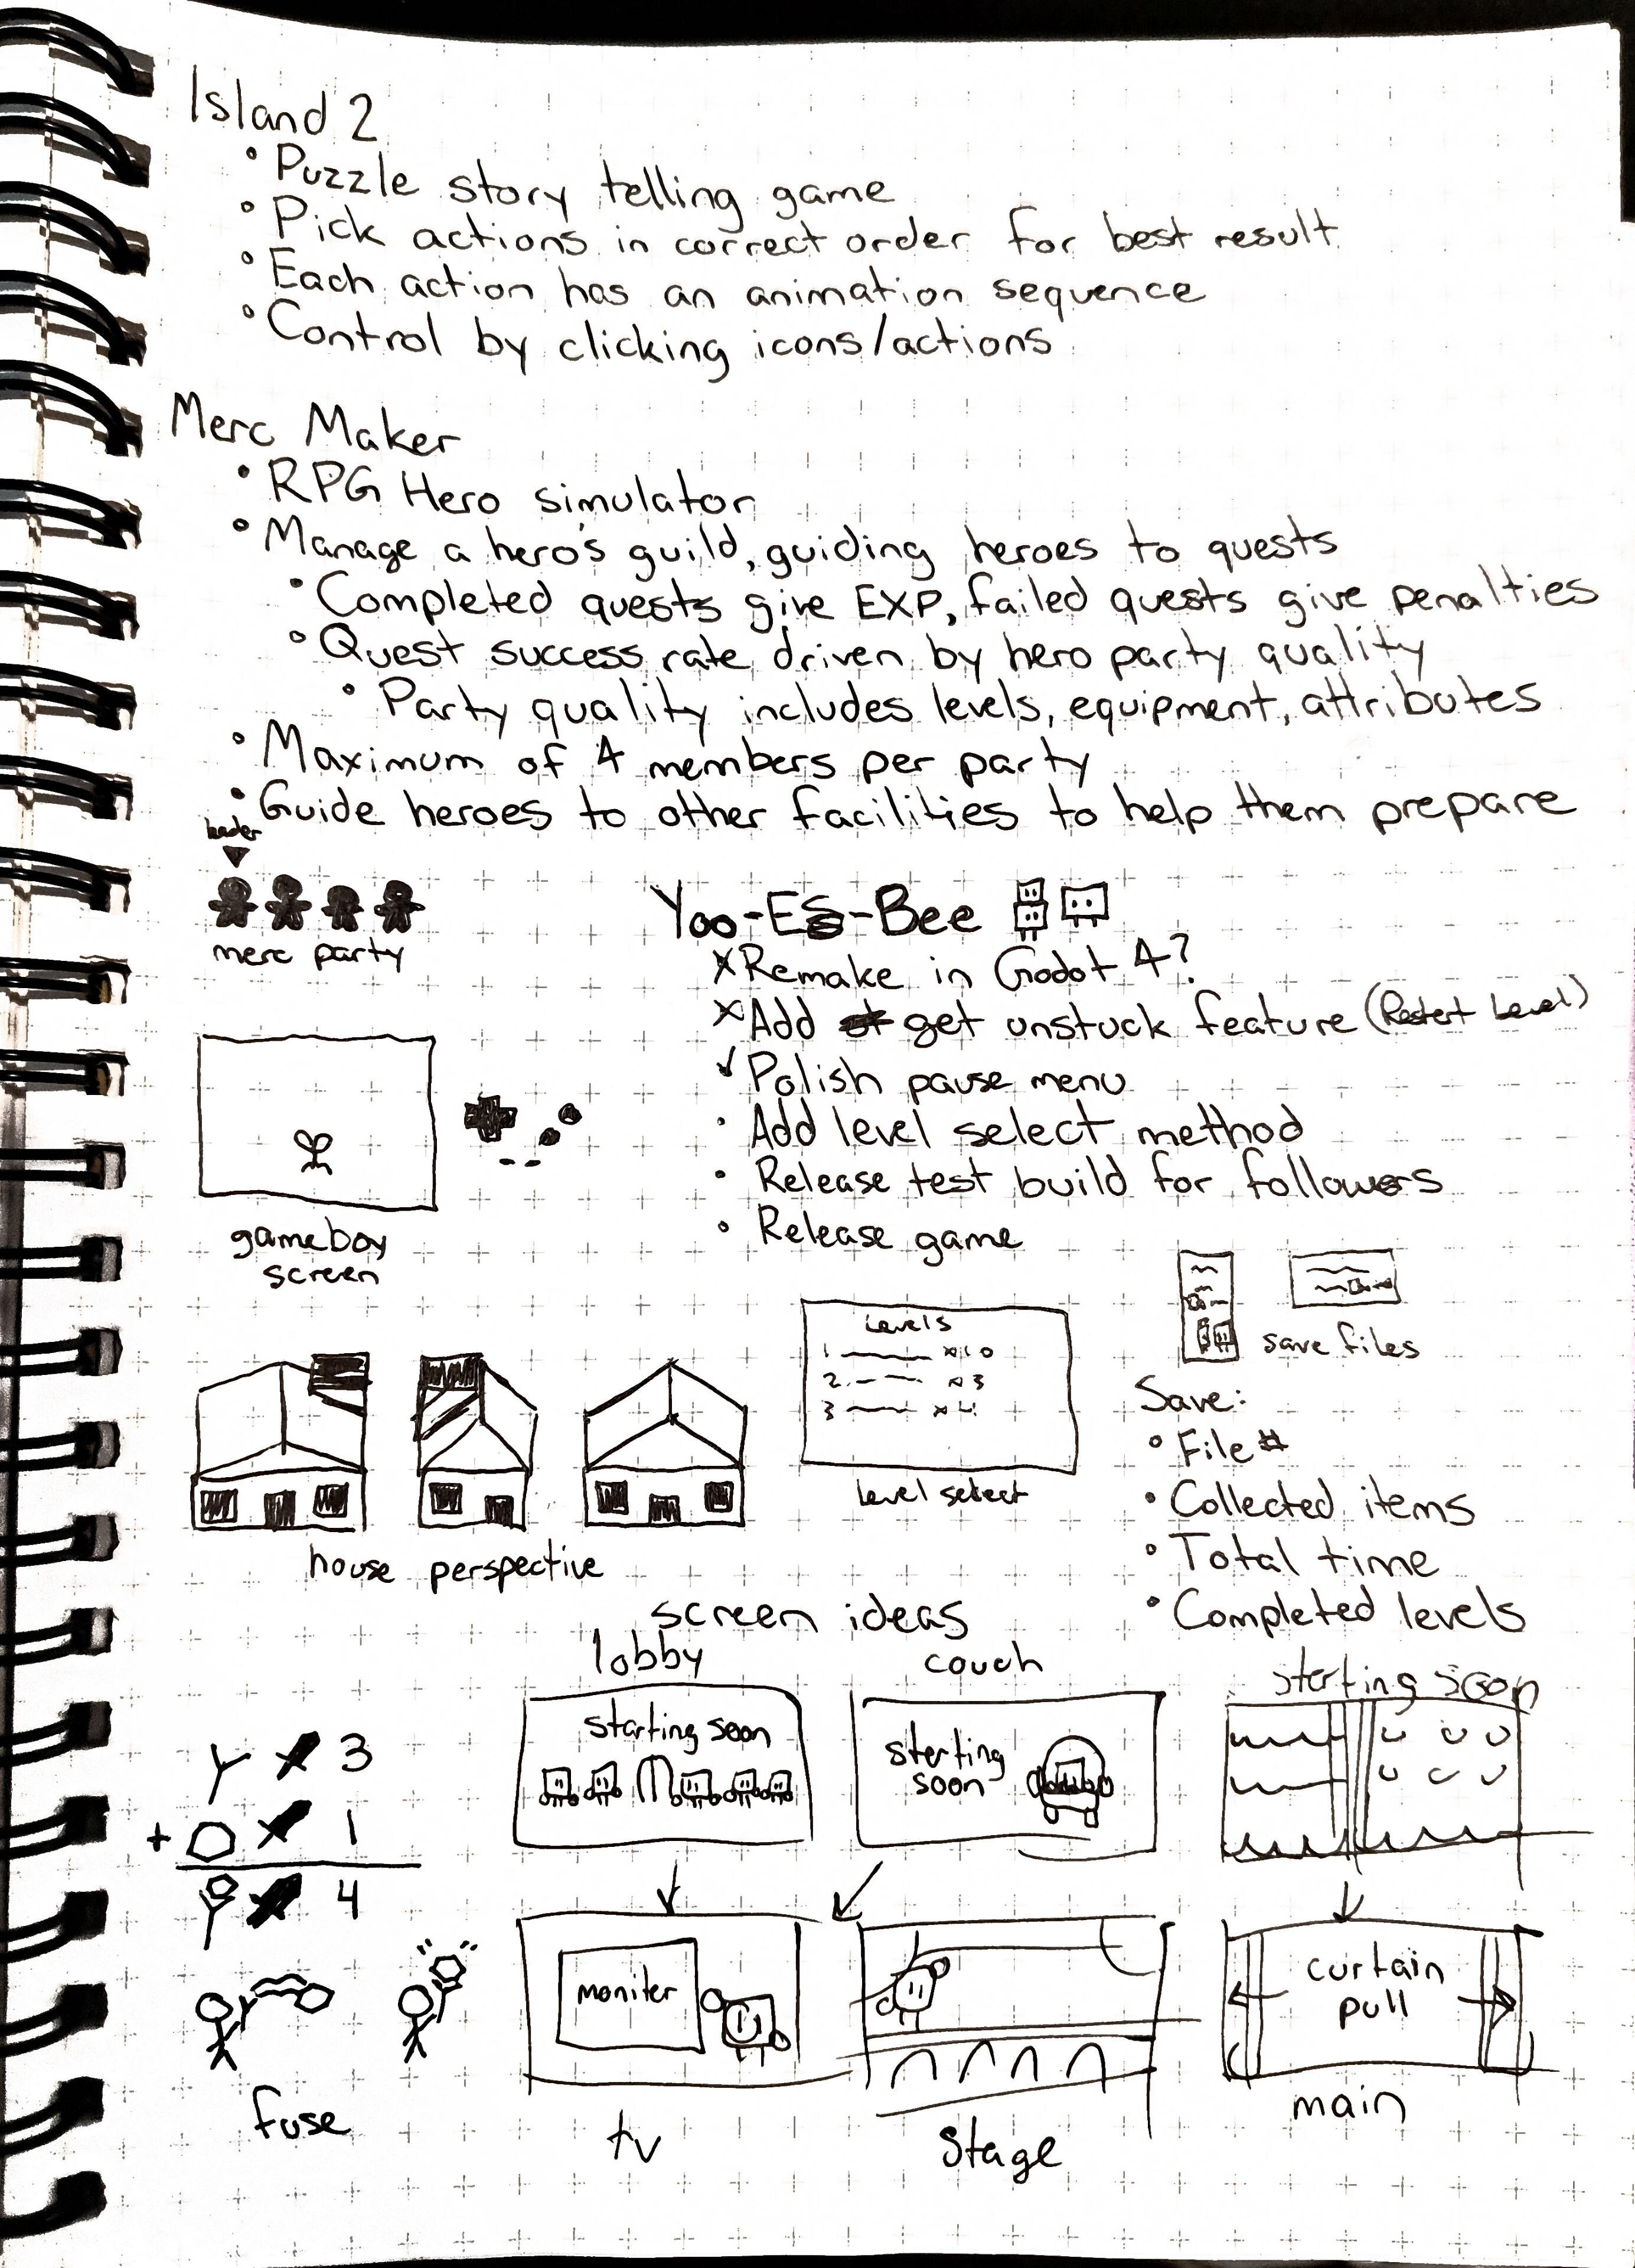 Island 2
• Puzzle story telling game
• Pick actions in correct order for best result
• Each action has an animation sequence
• Control by clicking icons/actions
Merc Maker
• RPG Hero simulator
• Manage a hero's guild, guiding heroes to quests
• Completed quests give EXP, failed quests give penalties
• Quest success rate driven by hero party quality
• Party quality includes levels, equipment, attributes
• Maximum of 4 members per party
• Guide heroes to other facilities to help them prepare
leader
merc party
Yoo-Es-Bee
x Remake in Godot 4?
x Add get unstuck feature (Restart Level)
✓ Polish pause menu
• Add level select method
• Release test build for followers
• Release game
gameboy
screen
Levels
1 x10
2. x3
3 x4
level select
save files
Save:
• File #
• Collected items
• Total time
• Completed levels
house perspective
screen ideas
lobby
starting soon
couch
starting
soon
starting soon
3
+ 1
4
fuse
moniter
tv
Stage
curtain
pull
main